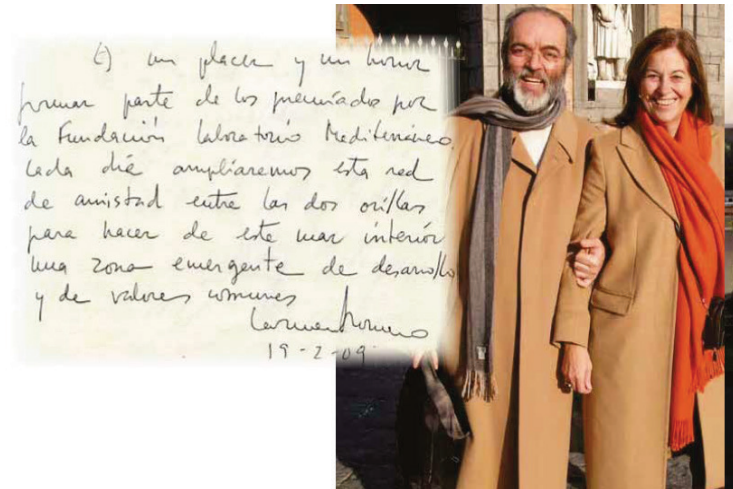 Es un placer y un honor
formar parte de los premiados por
la Fundación Laboratorio Mediterráneo.
Cada día ampliaremos esta red
de amistad entre las dos orillas
para hacer de este mar interior
una zona emergente de desarrollo
y de valores comunes
Carmen Romero
19-2-09